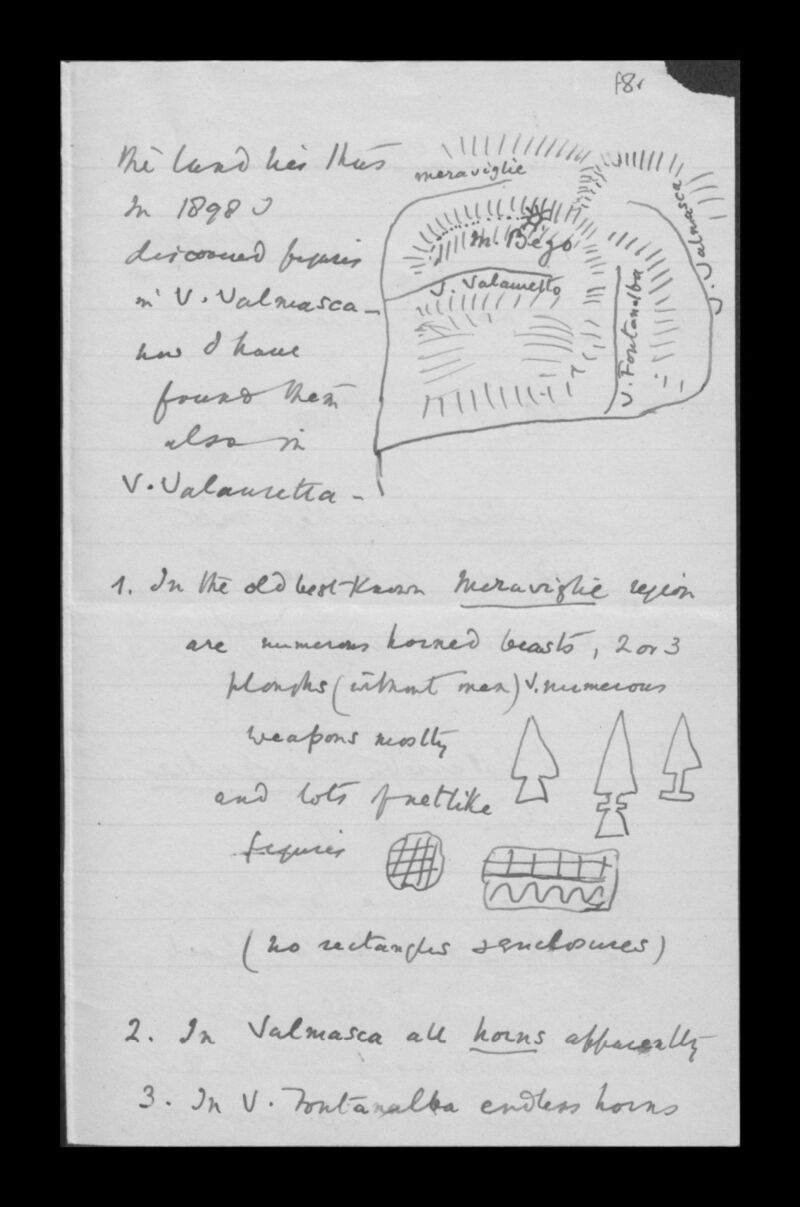 f8r
The land lies thus
In 1898 I
discovered figures
in V. Valmasca -
now I have
found them
also in
V. Valauretta -
meraviglie
M. Bego
V. Valauretto
V. Fontanalba
V. Valmasca
1. In the old best-known Meraviglie region
are numerous horned beasts, 2 or 3
ploughs (without men) v. numerous
weapons mostly
and lots of netlike
figures
(no rectangles & enclosures)
2. In Valmasca all horns apparently
3. In V. Fontanalba endless horns